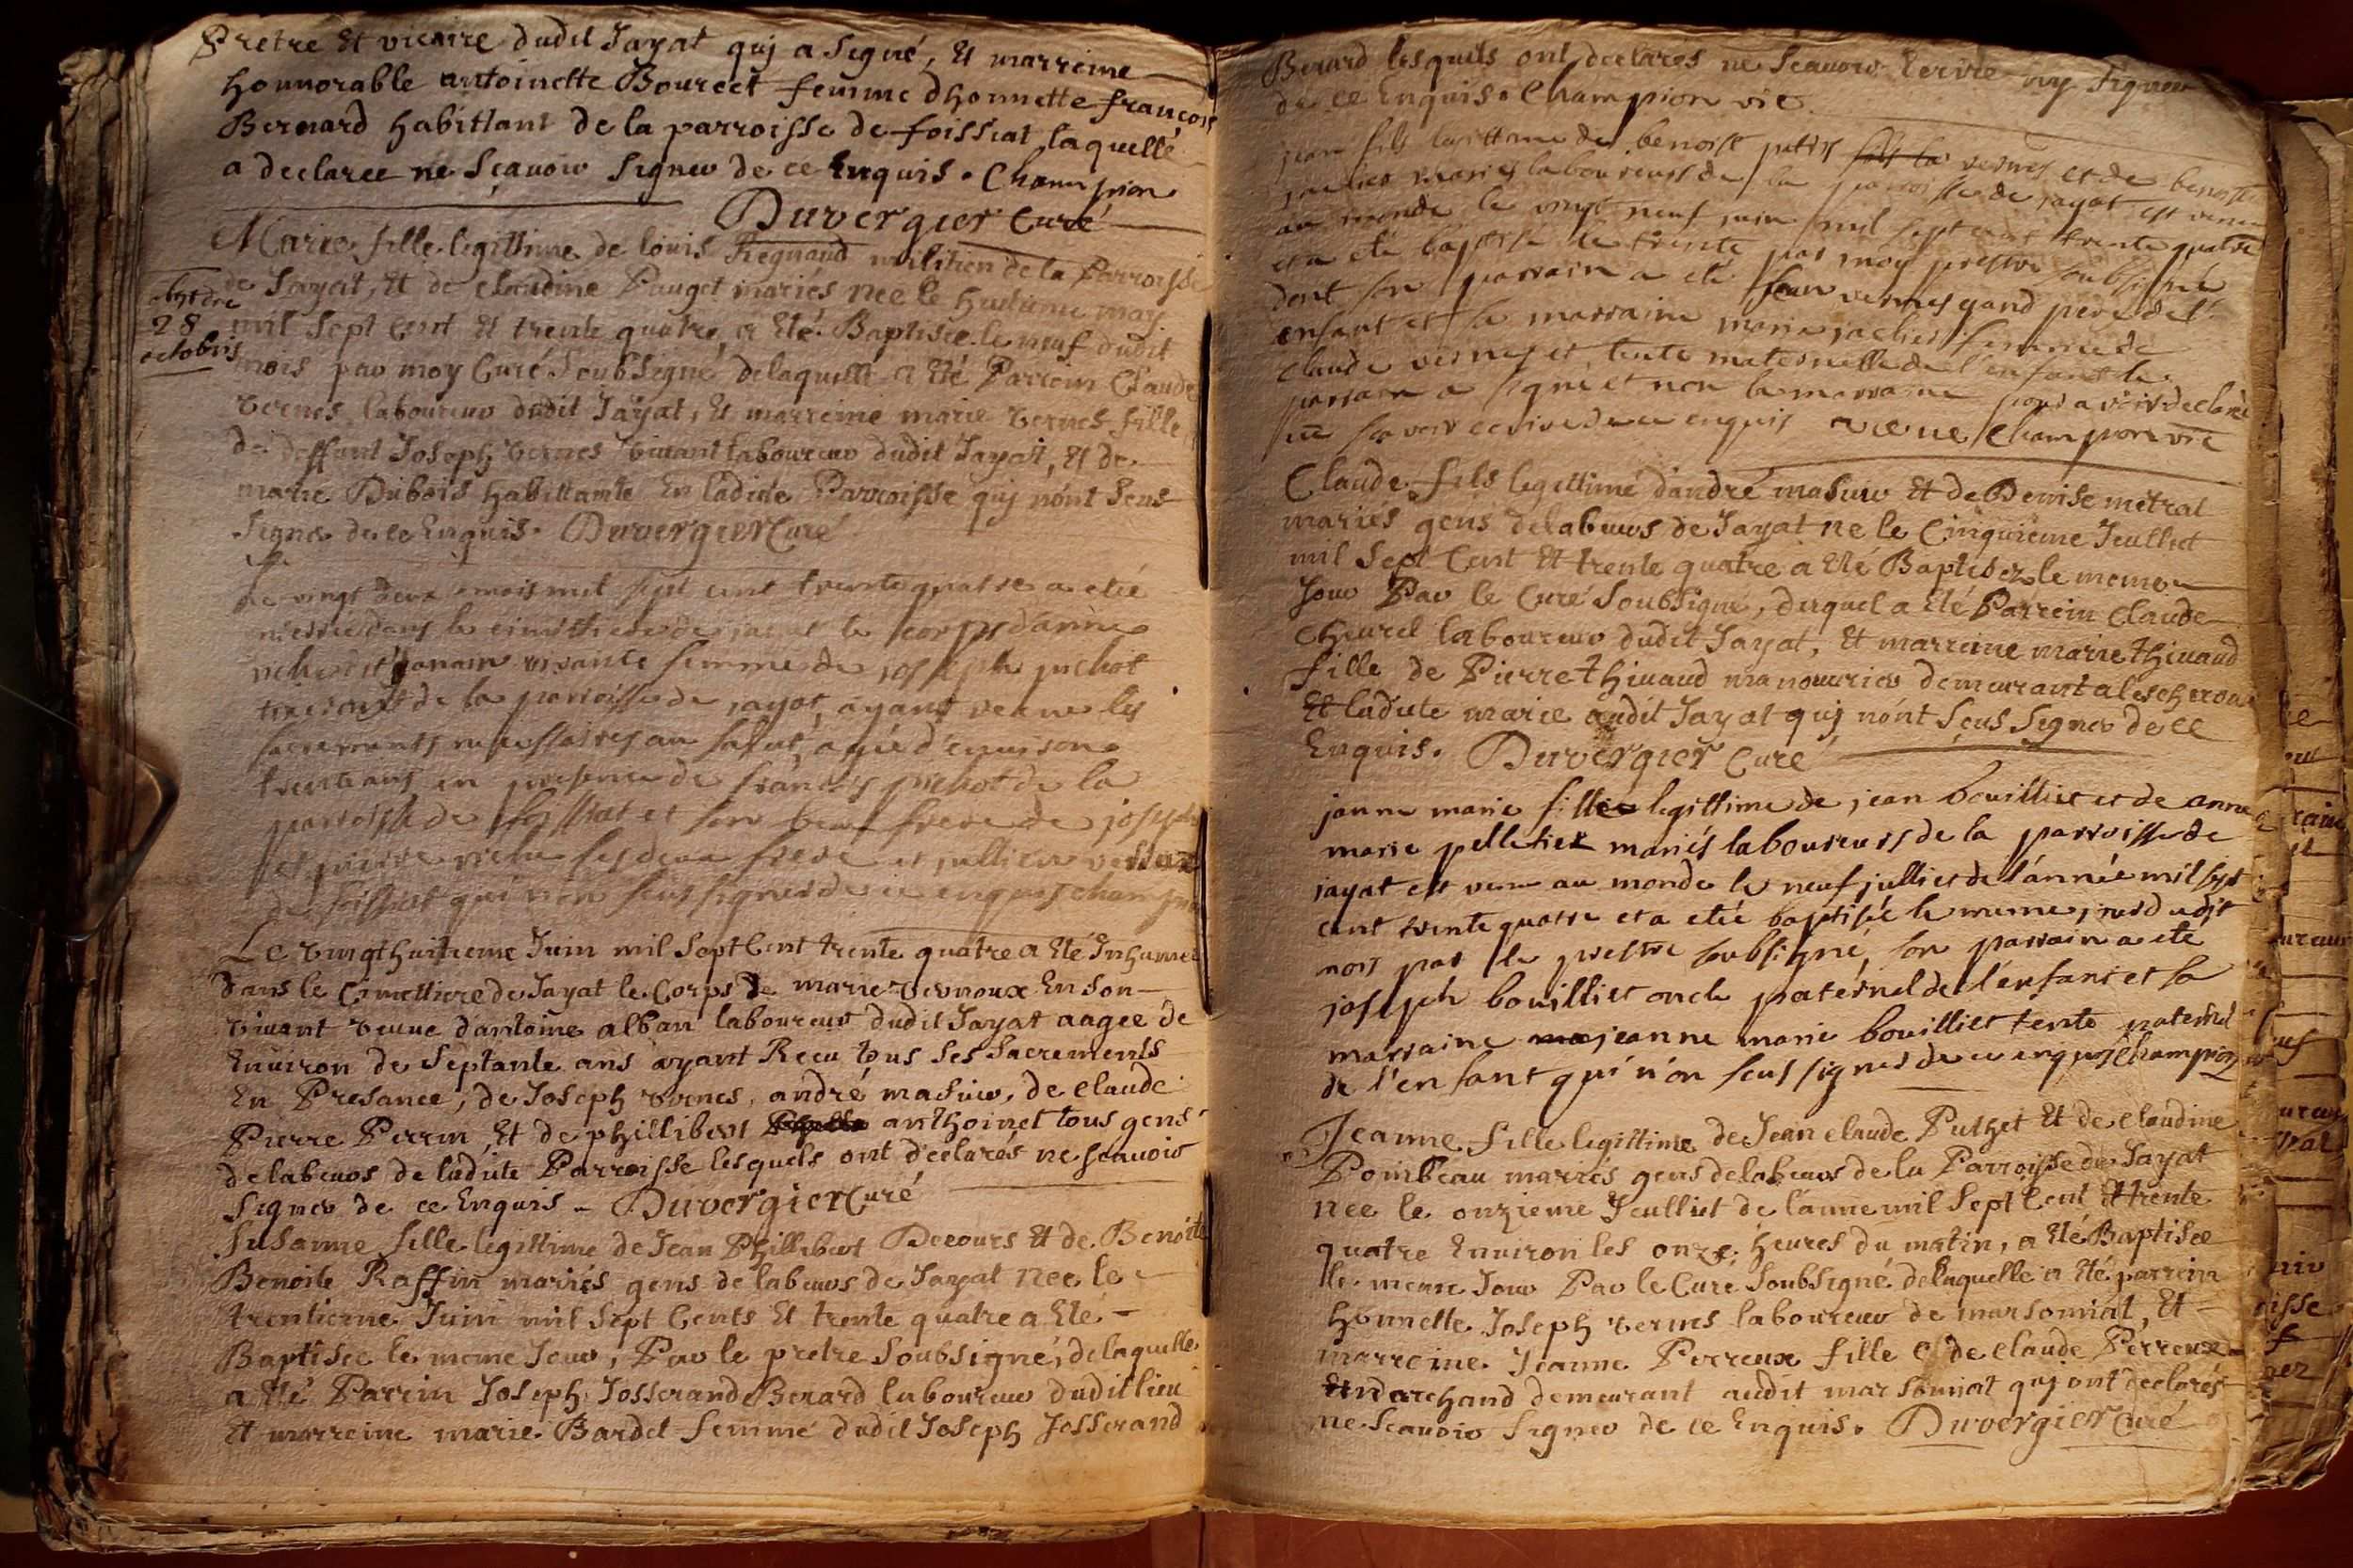 Pretre Et vicaire dudit Jayat quj a Signé, Et marreine
honnorable antoinette Bourcet femme dhonnette françois
Bernard habittant de la parroisse de foissiat laquelle
a declaree ne Sçavoir Signer de ce Enquis. Champion
Duvergier Curé
Marie fille legittime de louis Regnaud militien de la Parroisse
de Jayat, Et de claudine Pauget mariés nee le huitieme may
mil Sept Cent Et trente quatre, a Eté Baptisée le neuf dudit
mois par moy Curé Soubsigné delaquelle a Eté Parrein Claude
vernes laboureur dudit Jayat, Et marreine marie vernes fille
de deffunt Joseph vernes vivant laboureur dudit Jayat, Et de
marie Dubois habittante En ladite Parroisse quj nont Seus
Signer de ce Enquis. Duvergier Curé
28
octobris
Le vingt deux mars mil sept cent trente quatre a etée
dans le cimittiere de jayat le corps d'anne
vivante femme de joseph pichot
de la parroisse de jayat, ayant reçeue les
sacrements necessaires au salut, agée d'environ
trente ans en presence de françois pichot de la
parroisse de foissiat et son beau frere de joseph
et pierre ses deux frere et jullien
de foissiat qui non seus signer de ce enquis champion
Le vingthuitieme Juin mil Sept Cent trente quatre a Eté Inhumee
dans le Cimettiere de Jayat le Corps de marie vernoux En Son
vivant veuve dantoine alban laboureur dudit Jayat aagee de
Environ de Septante ans ayant Recu tous Ses Sacrements
En Presance, de Joseph vernes, andré masuir, de claude
Pierre Perrin, Et de phillibert anthoinet tous gens
delabeurs de ladite Parroisse lesquels ont declarés ne scauoir
Signer de ce Enquis - Duvergier Curé
Susanne fille legittime de Jean Phillibert Decours Et de Benoite
Benoite Raffin mariés gens de labeurs de Jayat nee le
trentieme Juin mil Sept Cents Et trente quatre a Eté
Baptisee le meme Jour, Par le pretre Soubsigné, delaquelle
a Eté Parrin Joseph Josserand Berard laboureur dudit lieu
Et marreine marie Bardet femme dudit Joseph Josserand
Berard lesquels ont declares ne Scauoir Ecrire ny Signer
de ce Enquis. Champion vic
jean fils legittime de benoist petit vernes et de benoiste
mariés laboureurs de la parroisse de jayat est venu
au monde le vingt neuf juin mil sept cent trente quatre
et a eté baptisé le trente par moy prestre soubsigné
dont son parrain a eté jean vernes grand pere de l'
enfant et sa marraine marie femme de
claude vernes et tente maternelle de l'enfant le
parrain a signé et non la marraine pour avoir declaré
ne savoir ecrire de ce enquis Champion vic
Claude fils legittime dandré masuir Et de Denise metral
mariés gens delabeurs de Jayat ne le Cinquieme Jeulliet
mil Sept Cent Et trente quatre a Eté Baptisez le meme
Jour Par le Curé Soubsigné, duquel a Eté Parrein Claude
Cheurel laboureur dudit Jayat, Et marreine marie thivaud
fille de Pierre thivaud manouurier demeurant a lescheroux
Et ladite marie audit Jayat quj nont Sçeus Signer de ce
Enquis. Duvergier Curé
janne marie fille legittime de jean bouilliet et de anne
marie pelletier mariés laboureurs de la parroisse de
jayat est venu au monde le neuf julliet de l'année mil sept
cent trente quatre et a etée baptisée le meme jour dudit
mois par le prestre soubsigné, son parrain a eté
joseph bouilliet oncle paternel de l'enfant et sa
marraine jeanne marie bouilliet tente paternel
de l'enfant qui n'on seus signer de ce enquis champion
Jeanne fille legittime de Jean claude Puthet Et de claudine
Pombeau mariés gens delabeurs de la Parroisse de Jayat
nee le onzieme Jeulliet de lannee mil Sept Cent Et trente
quatre Environ les onze heures du matin, a Eté Baptisee
le meme Jour Par le Curé Soubsigné delaquelle a Eté parrein
honnette Joseph vernes laboureur de marsonniat, Et
marreine Jeanne Perreux fille de claude Perreux
marchand demeurant audit marsonniat quj ont declarés
ne Scauoir Signer de ce Enquis. Duvergier Curé